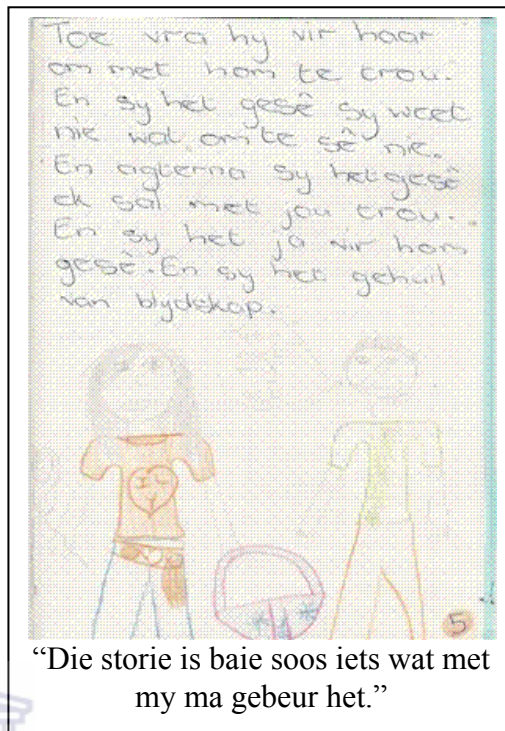 Toe vra hy vir haar
om met hom te trou.
En sy het gesê sy weet
nie wat om te sê nie.
En agterna sy het gesê
ek sal met jou trou.
En sy het ja vir hom
gesê. En sy het gehuil
van blydskap.
I L
Y
5
“Die storie is baie soos iets wat met
my ma gebeur het.”